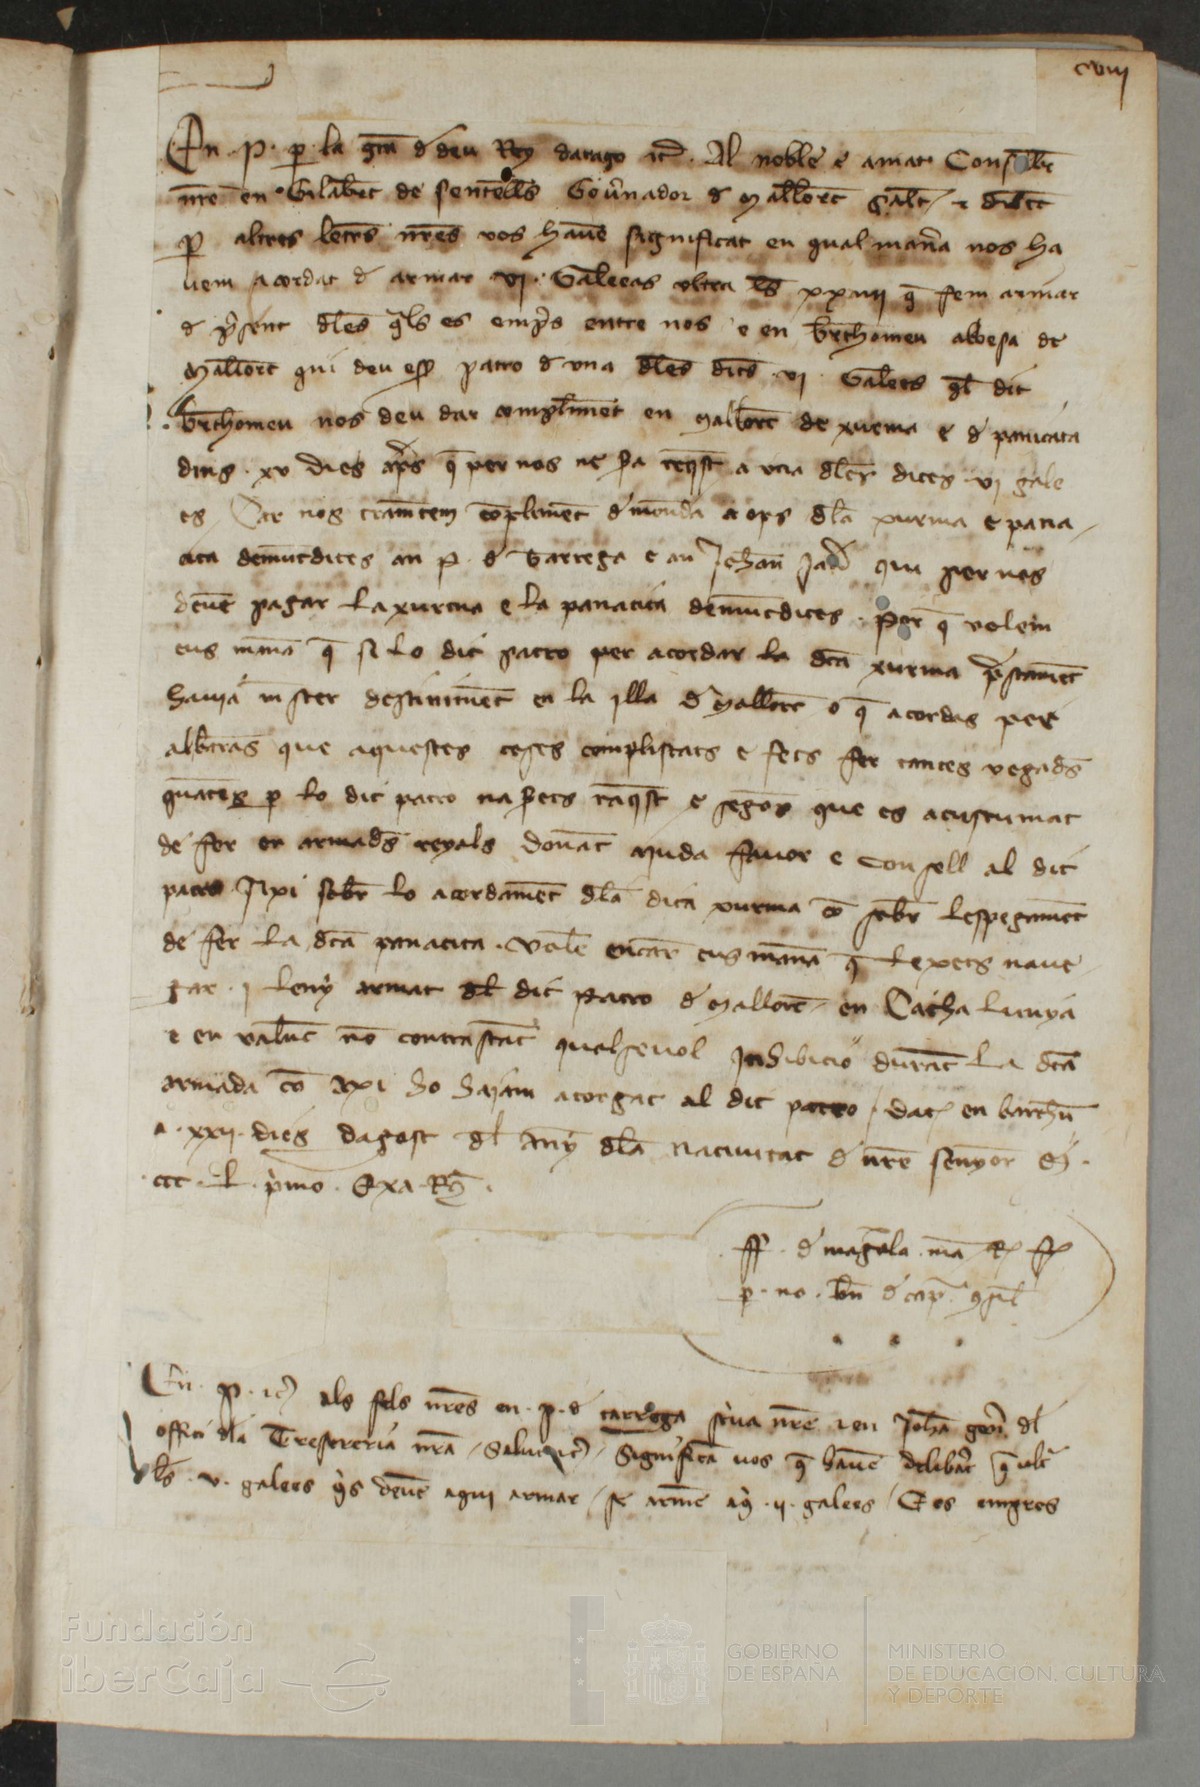 cviii
En .P. per la gra de deu Rey darago etc. Al noble e amat Conseller
nre en Gilabert de Sentelles Gouernador de Mallorc Salut e dileccio
per altres letres nres vos hauem significat en qual manera nos ha
uem acordat de armar vi. Galeeas ultra les xxvii que fem armar
de present deles quals es empres entre nos e en berthomeu
Mallorc qui deu esser patro de una deles dites .vi. Galees quel dit
berthomeu nos deu dar compliment en Mallorc de xurma e de panicata
dins .xv dies apres que per nos ne sia request a una deles dites vi gale
es Car nos trametem compliment de moneda a ops dela xurma e pana
tica demuntdites an P. de Tarrega e an Johan qui per nos
deuen pagar la xurma e la panatica demuntdites. Per que volem
eus manam que si lo dit patro per acordar la dita xurma prestament
hauia mester en la illa de Mallorc o que acordas per
que aquestes coses e fets fer tantes vegades
quantes per lo dit patro na siats request e segons que es acustumat
de fer en armades reyals donant ajuda fauor e consell al dit
patro Axi sobre lo acordament dela dita xurma com sobre lespegament
de fer la dita panatica. Volem encara eus manam que lexets naue
gar .i. leny armat del dit Patro de Mallorc en Cathalunya
e en Valenc no contrastant qualseuol Inhibicio durant la dita
armada com Axi ho hajam atorgat al dit patro. Dat en barchna
a .xxii. dies dagost del Any dela natiuitat de nre senyor M.
ccc. L. primo. Exa. Rg.
ff. de magarola ma R
p. no. bn de cap
En .P. etc als feels nres en .P. de tarrega scriua nre e en Johan del
offici dela Tresoreria nra Salut etc Significam vos que hauem deliberat que ultra
les .v. galees quens deuem aqui armar se armen aqui .ii. galees E es empres
Fundación
iberCaja
GOBIERNO
DE ESPAÑA
MINISTERIO
DE EDUCACIÓN, CULTURA
Y DEPORTE